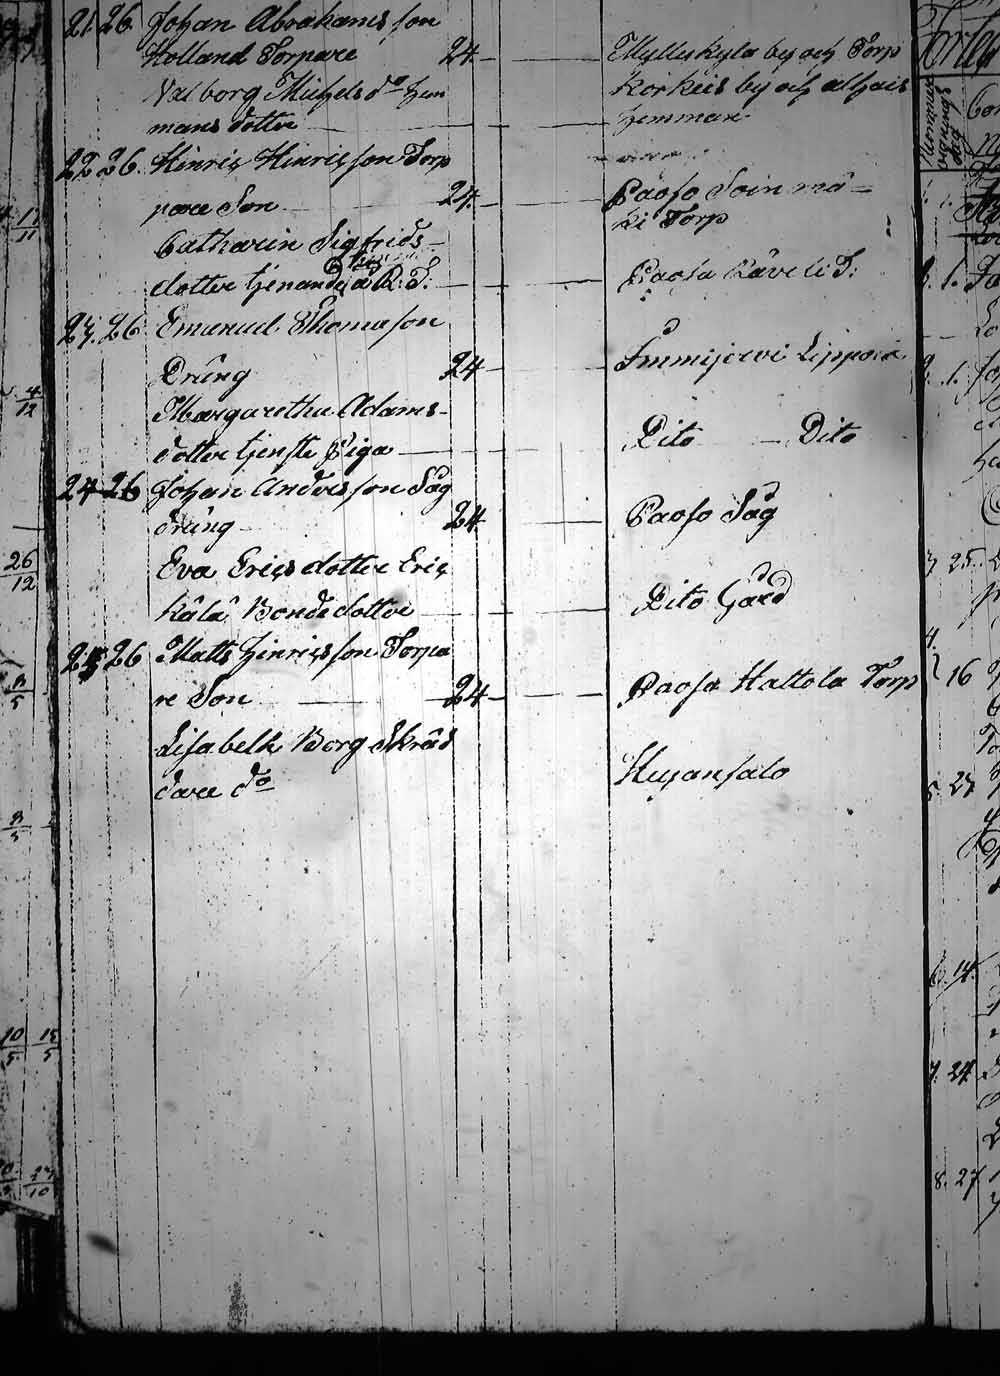 21. 26. Johan Abrahamsson
Holland Torpare 24. Myllykylä by och Torp
Valborg Michelsdr hem Korkeis by och
mans dotter hemman
22 26. Hinric Hinricsson Torp
pare Son 24. Paaso Soinmä-
ki Torp
Catharin Sigfrids-
dotter tjenande å R. T. Paaso Räveli T:
23. 26 Emanuel Thomasson
Dräng 24 Immijervi
Margaretha Adams-
dotter tjenste Piga Dito Dito
24 26 Johan Andersson Såg
dräng 24. Paaso Såg
Eva Ericsdotter Eric
kälä Bondedotter Dito Gård
25 26 Matts Hinricsson Torpa
re Son 24 Paaso Hattola Torp
Lisabeth Borg Skräd
dare do Kujansalo
11
4
12
26
12
8
5
8
5
10 15
5 5
27
10
3 25.
4.
16
5. 27
6. 14.
7. 24.
8. 27